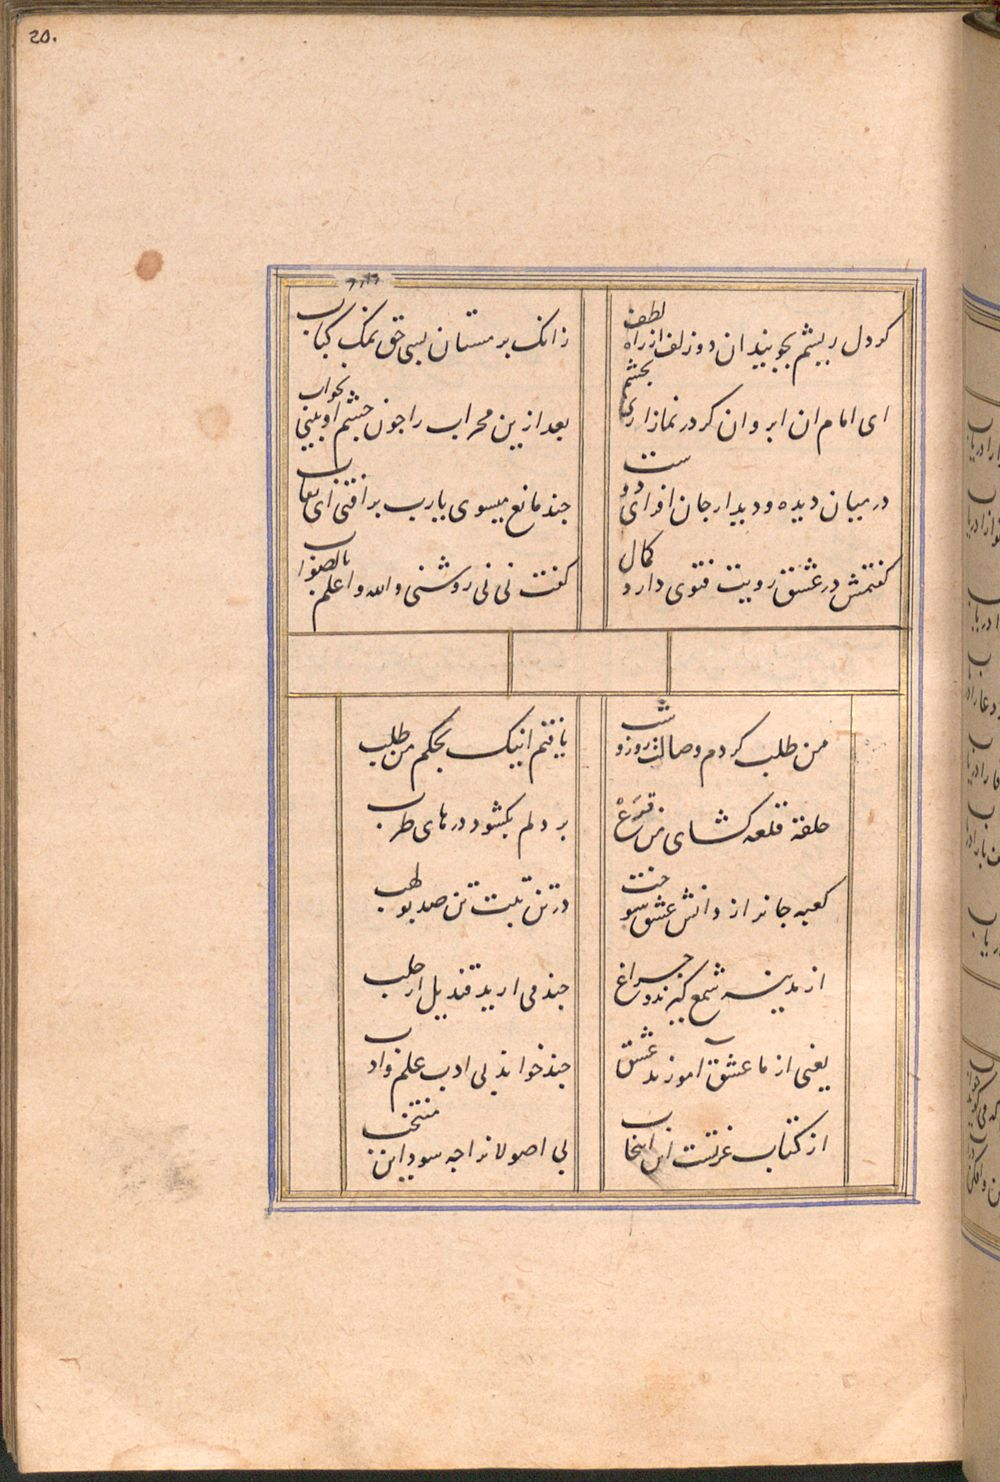 20.
کر دل ریشم بجویند ان دو زلف از راه لطف
زانک بر مستان بسی حق نمک کباب
ای امام ان ابروان کر در نماز اری بچشم
بعد ازین محراب را جون چشم او بینی بخواب
در میان دیده و دیدار جان افزای دوست
جند مانع میسوی یارب برافتی ای نقاب
کفتمش در عشق رویت فتوی دارد کمال
کفت نی نی روشنی والله و اعلم بالصواب
من طلب کردم وصالت روز و شب
یافتم اینک بحکم من طلب
حلقهٔ قلعه کشای من قرع
بر دلم بکشود درهای طرب
کعبه جانرا ز دانش عشق سوخت
در تن تبت تن صد بولهب
از مدینه شمع کیرند و چراغ
جند می ارید قندیل از حلب
یعنی از ما عشق آموزند عشق
جند خوانند بی ادب علم و ادب
از کتاب غرتست این انتخاب
بی اصولانرا جه سود این منتخب